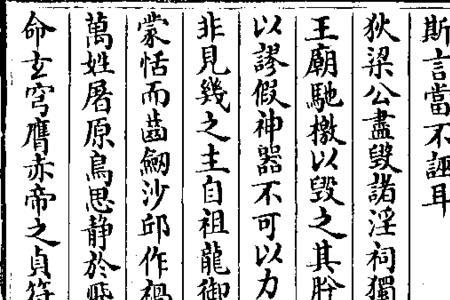 斯言當不誣耳
狄梁公盡毁諸淫祠獨
王廟馳檄以毁之其肸
以謬假神器不可以力
非見幾之主自祖龍御
蒙恬而齒劒沙邱作禍
萬姓屠原鳥思静於飛
命玄穹膺赤帝之貞符